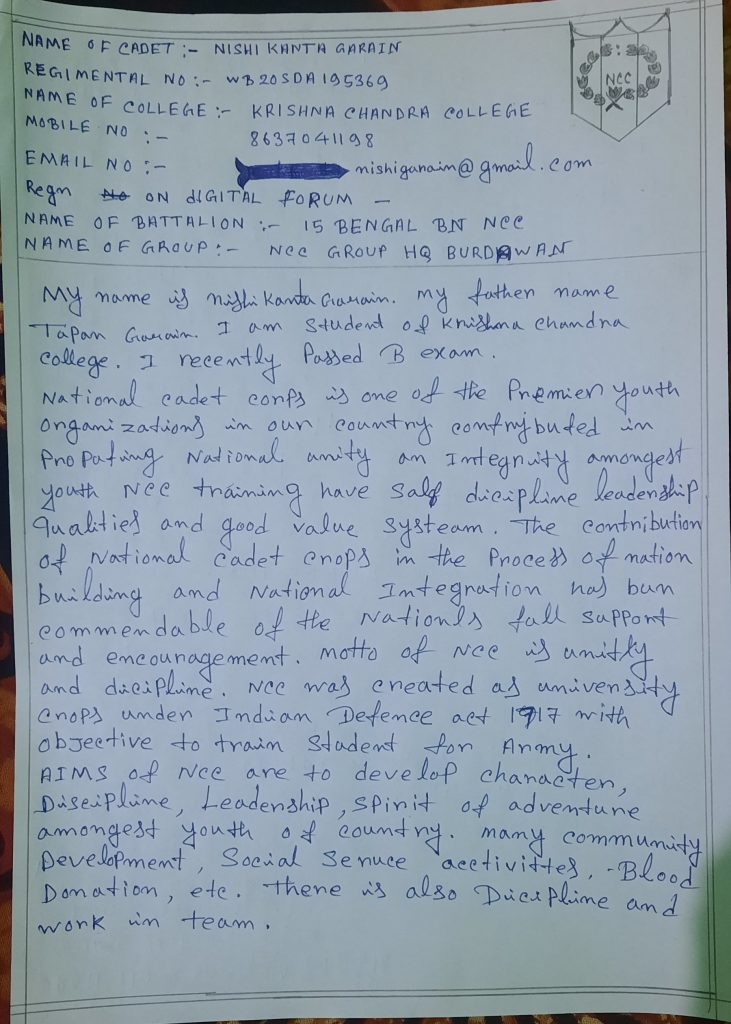 NAME OF CADET :- NISHI KANTA GARAIN
REGIMENTAL NO :- WB20SDA195369
NAME OF COLLEGE :- KRISHNA CHANDRA COLLEGE
MOBILE NO :- 8637041198
EMAIL NO :- nishigarain@gmail.com
Regn No ON dIGITAL FORUM -
NAME OF BATTALION :- 15 BENGAL BN NCC
NAME OF GROUP :- NCC GROUP HQ BURDAWAN
NCC
My name is Nishi Kanta Garain. My father name
Tapan Garain. I am Student of Krishna chandra
college. I recently Passed B exam.
National cadet corps is one of the Premier youth
organizations in our country contrjbuted in
Propating National unity an Integruity amongest
youth NCC training have Salf dicipline leadership
qualities and good value systeam. The contribution
of National cadet crops in the Process of nation
building and National Integration has bun
commendable of the Nationls fall support
and encouragement. Motto of NCC is unitly
and dicipline. NCC was created as university
crops under Indian Defence act 1917 with
objective to train Student for Army.
AIMS of NCC are to develop character,
Disciplline, Leadership, Spirit of adventure
amongest youth of country. Many community
Development, Social Seruce acctivittes, -Blood
Donation, etc. There is also Dicipline and
work in team.